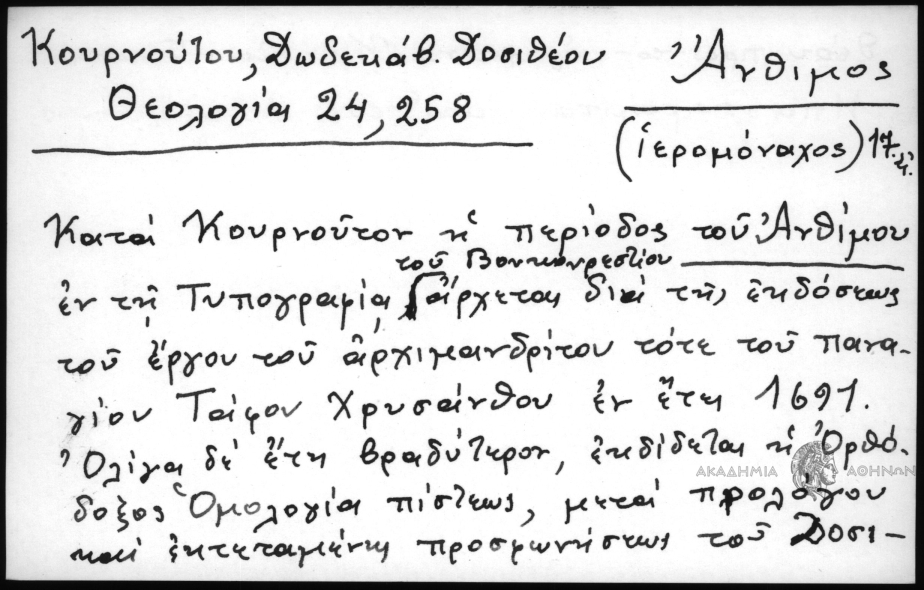 Κουρνούτου, Δωδεκάβ. Δοσιθέου
Θεολογία 24, 258
Ἄνθιμος
(ἱερομόναχος) 17. αἰ.
Κατά Κουρνοῦτον ἡ περίοδος τοῦ Ἀνθίμου
τοῦ Βουκουρεστίου
ἐν τῇ Τυπογραφίᾳ ἄρχεται διά τῆς ἐκδόσεως
τοῦ ἔργου τοῦ ἀρχιμανδρίτου τότε τοῦ Πανα-
γίου Τάφου Χρυσάνθου ἐν ἔτει 1691.
Ὀλίγα δέ ἔτη βραδύτερον, ἐκδίδεται ἡ Ὀρθό-
δοξος Ὁμολογία πίστεως, μετά προλόγου
καί ἐκτεταμένης προσφωνήσεως τοῦ Δοσι-
ΑΚΑΔΗΜΙΑ ΑΘΗΝΩΝ